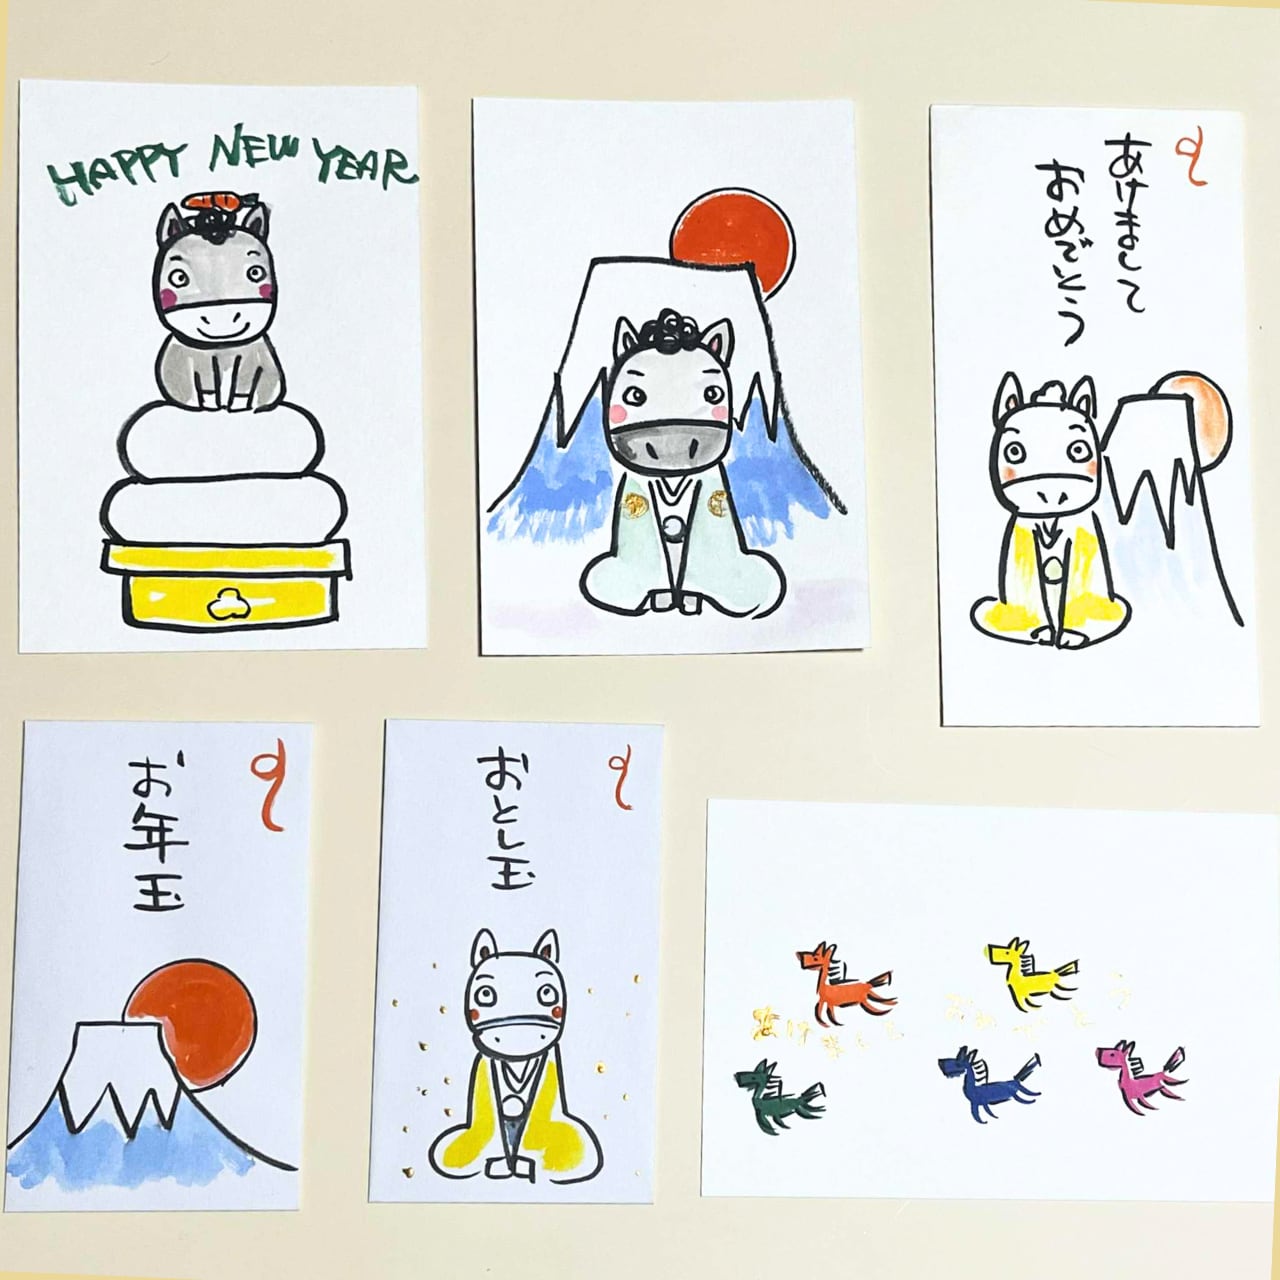 HAPPY NEW YEAR
あけまして
おめでとう
お年玉
おとし玉
あけまして おめでとう